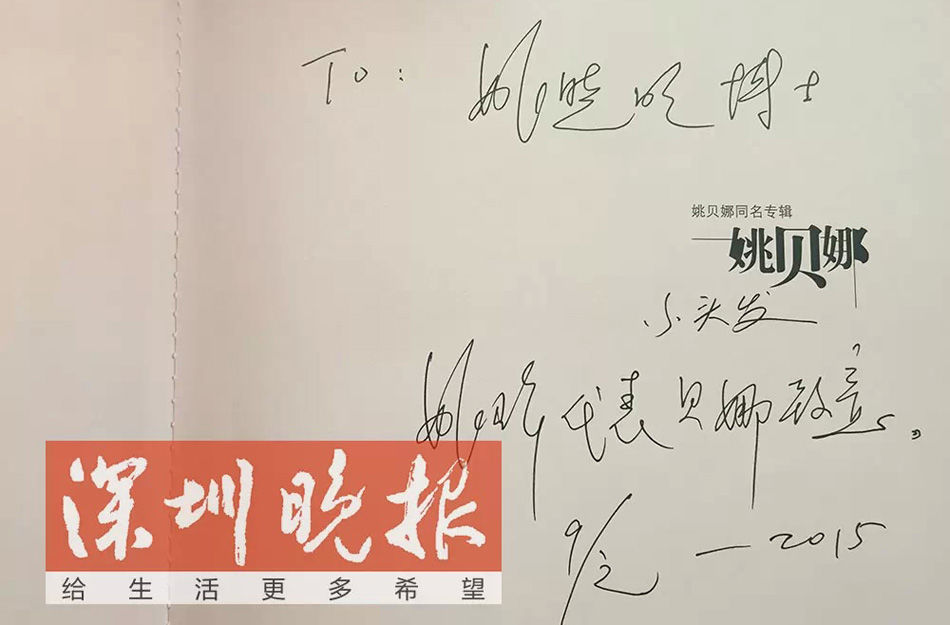 To: 姚晓明博士
姚贝娜同名专辑
姚贝娜
小头发
姚峰代表贝娜致意。
9/2 — 2015
深圳晚报
给生活更多希望